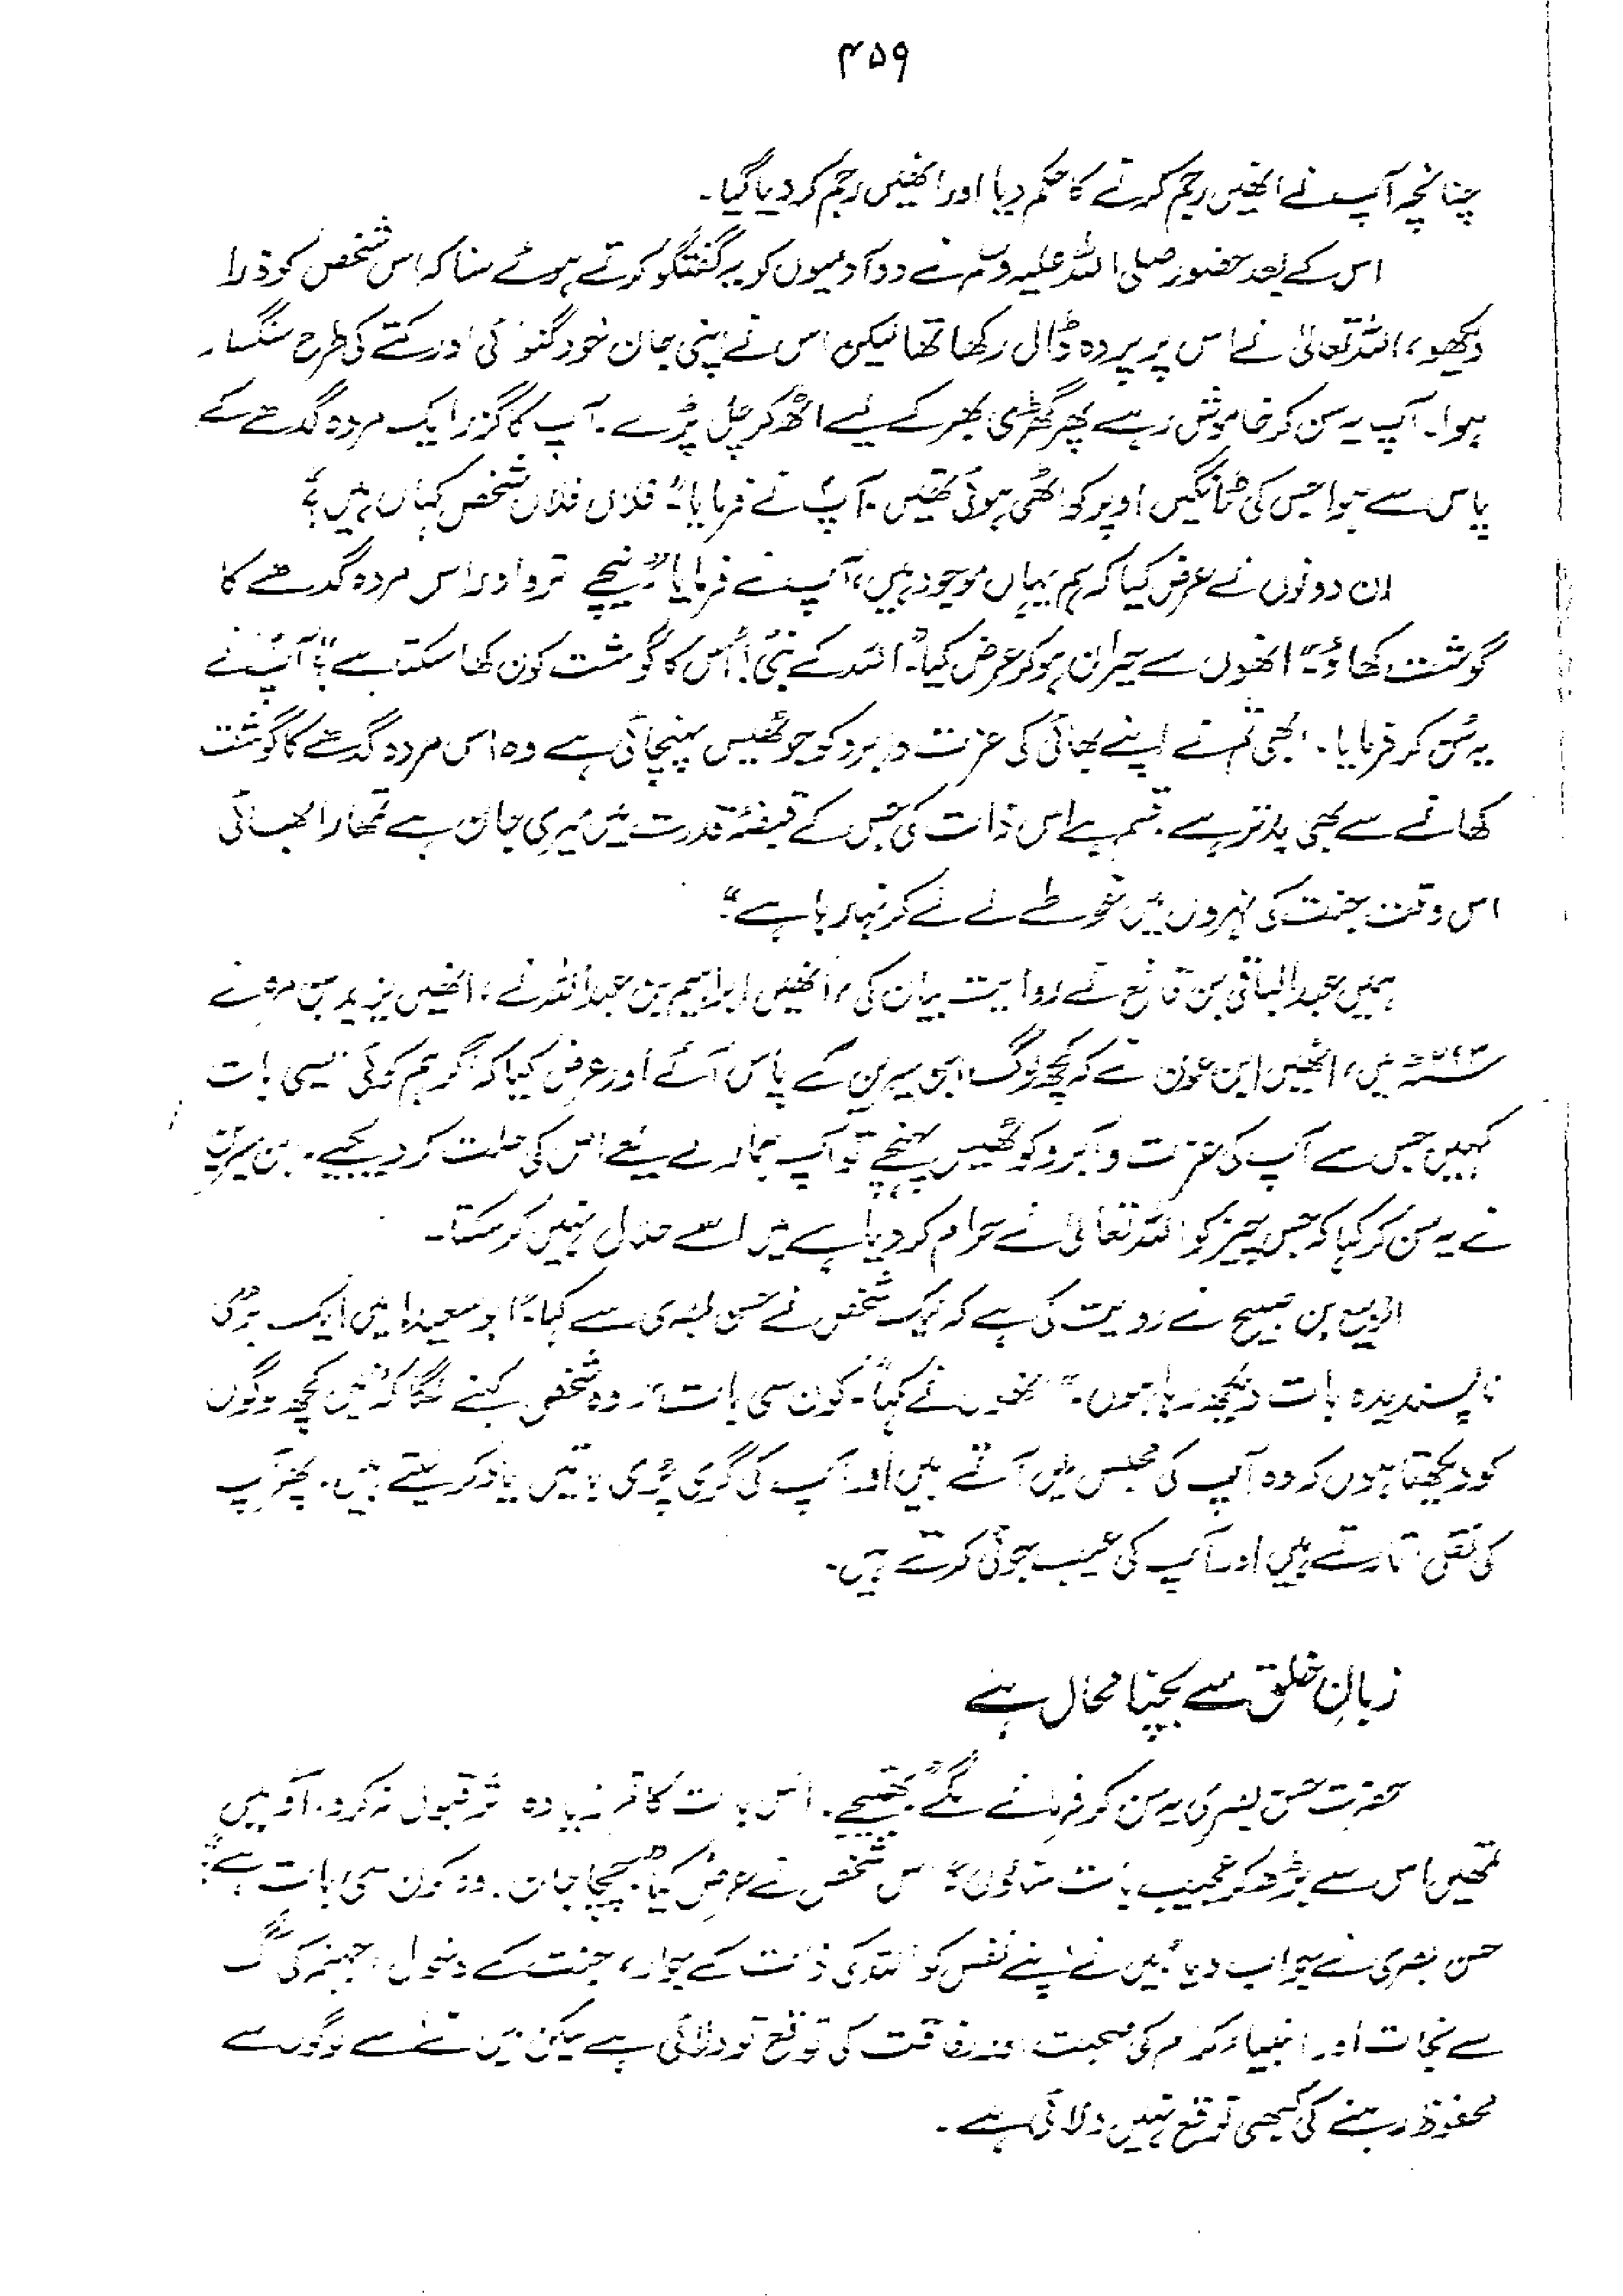 ۴۵۹
چنانچہ آپ نے انھیں رجم کرنے کا حکم دیا اور انھیں رجم کر دیا گیا۔
اس کے بعد حضور صلی اللہ علیہ وسلم نے دو آدمیوں کو یہ گفتگو کرتے ہوئے سنا کہ اس شخص کو ذرا
دیکھو، اللہ تعالیٰ نے اس پر پردہ ڈال رکھا تھا لیکن اس نے اپنی جان خود گنوائی اور کتے کی طرح سنگسار
ہوا۔ آپ یہ سن کر خاموش رہے پھر گھڑی بھر کے لیے اٹھ کر چل پڑے۔ آپ کا گزر ایک مردہ گدھے کے
پاس سے ہوا جس کی ٹانگیں اوپر کو اٹھی ہوئی تھیں۔ آپؐ نے فرمایا: "فلاں فلاں شخص کہاں ہیں؟
ان دونوں نے عرض کیا کہ ہم یہاں موجود ہیں، آپ نے فرمایا: "نیچے اترو اور اس مردہ گدھے کا
گوشت کھاؤ" انھوں سے حیران ہو کر عرض کیا: "اللہ کے نبیؐ! اس کا گوشت کون کھا سکتا ہے"؟ آپؐ نے
یہ سُن کر فرمایا۔ "ابھی تم نے اپنے بھائی کی عزت و آبرو کو جو ٹھیس پہنچائی ہے وہ اس مردہ گدھے کا گوشت
کھانے سے بھی بدتر ہے۔ قسم ہے اس ذات کی جس کے قبضۂ قدرت میں میری جان ہے تمھارا بھائی
اس وقت جنت کی نہروں میں غوطے لے لے کر نہا رہا ہے"
ہمیں عبدالباقی بن قانع نے روایت بیان کی، انھیں ابراہیم بن عبداللہ نے، انھیں یزید بن مرہ نے
میں، انھیں ابن عون نے کہ کچھ لوگ ابن سیرین کے پاس آئے اور عرض کیا کہ اگر ہم کوئی ایسی بات
کہیں جس سے آپ کی عزت و آبرو کو ٹھیس پہنچے تو آپ ہمارے لیے اس کی حلت کر دیجیے۔ ابن سیرین
نے یہ سن کر کہا کہ جس چیز کو اللہ تعالیٰ نے حرام کر دیا ہے میں اسے حلال نہیں کر سکتا۔
الربیع بن صبیح نے روایت کی ہے کہ ایک شخص نے حسن بصری سے کہا: "ابو سعید! میں ایک بڑی
ناپسندیدہ بات دیکھ رہا ہوں۔" انھوں نے کہا: "کون سی بات" وہ شخص کہنے لگا کہ میں کچھ لوگوں
کو دیکھتا ہوں کہ وہ آپ کی مجلس میں آتے ہیں اور آپ کی گری پڑی باتیں یاد کر لیتے ہیں۔ پھر آپ
کی نقلیں اتارتے ہیں اور آپ کی عیب جوئی کرتے ہیں۔
زبانِ خلق سے بچنا محال ہے
حضرت حسن بصری یہ سن کر فرمانے لگے: "بھتیجے۔ اس بات کا تم زیادہ اثر قبول نہ کرو۔ آؤ میں
تمھیں اس سے بڑھ کر عجیب بات بتاؤں" اس شخص نے عرض کیا: "چچا جان۔ وہ کون سی بات ہے"؟
حسن بصری نے جواب دیا "میں نے اپنے نفس کو اللہ کی ذات کے جوار، جنت کے دخول، جہنم کی آگ
سے نجات اور انبیاء کرام کی صحبت اور رفاقت کی توقع تو دلائی ہے لیکن میں نے اسے لوگوں سے
محفوظ رہنے کی کبھی توقع نہیں دلائی ہے۔